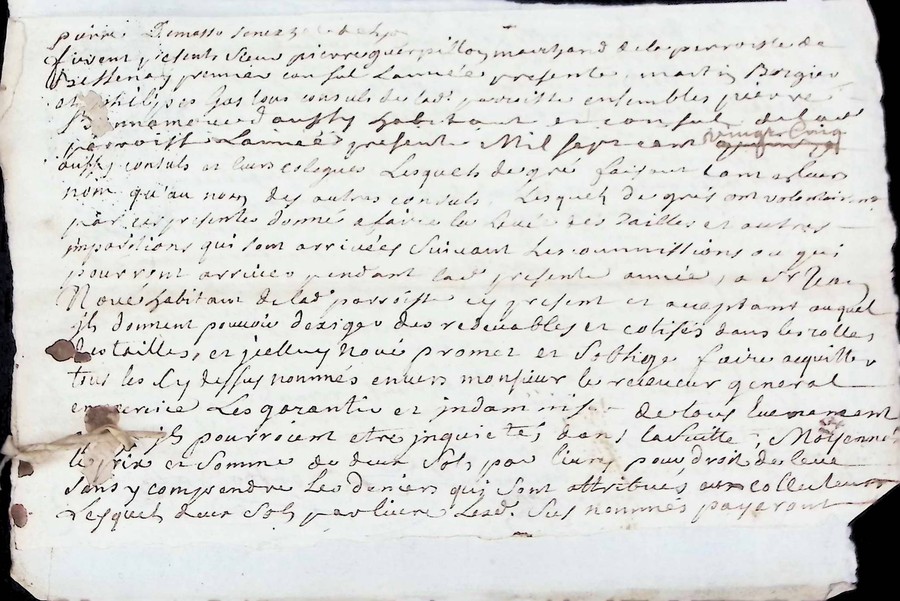 pierre Demasso
furent présents sieur pierre querpillon marchand de la perroisse de
Bessenay premier consul Lannée presente, martin Brigier
et philipes Gas tous consuls de lad. parroisse ensembles pierre
aussy habitant et consul de lad.
parroisse Lannée presente Mil sept cent vingt Cinq
aussy consuls et leurs cologues Lesquels de gré faisant tant en leurs
nom qu'au nom des autres consuls, Lesquels de grés ont volontairemt
par ces presentes donnés a faire la Levé des Tailles et autres
impositions qui sont arrivées suivant Les commissions ou qui
pourront arriver pendant lad. presente année, a Sr
Noué habitant de lad. parroisse icy present et aceptant auquel
ils donnent pouvoir dexiger des redevables et cotisés dans les rolles
des tailles, et jcelluy Noué promet et soblige faire acquitter
tous les Cy dessus nommés envers monsieur le receveur general
en exercice Les garantir et indamniser de tous Evenament
ils pourroient etre inquietés dans la suitte, Moyennt
le prix et somme de deux sols par livres pour droit de leve
sans y comprendre Les deniers qui sont attribués aux collecteurs
Lesquels deux sols par livre Lesd. sus nommés payeront